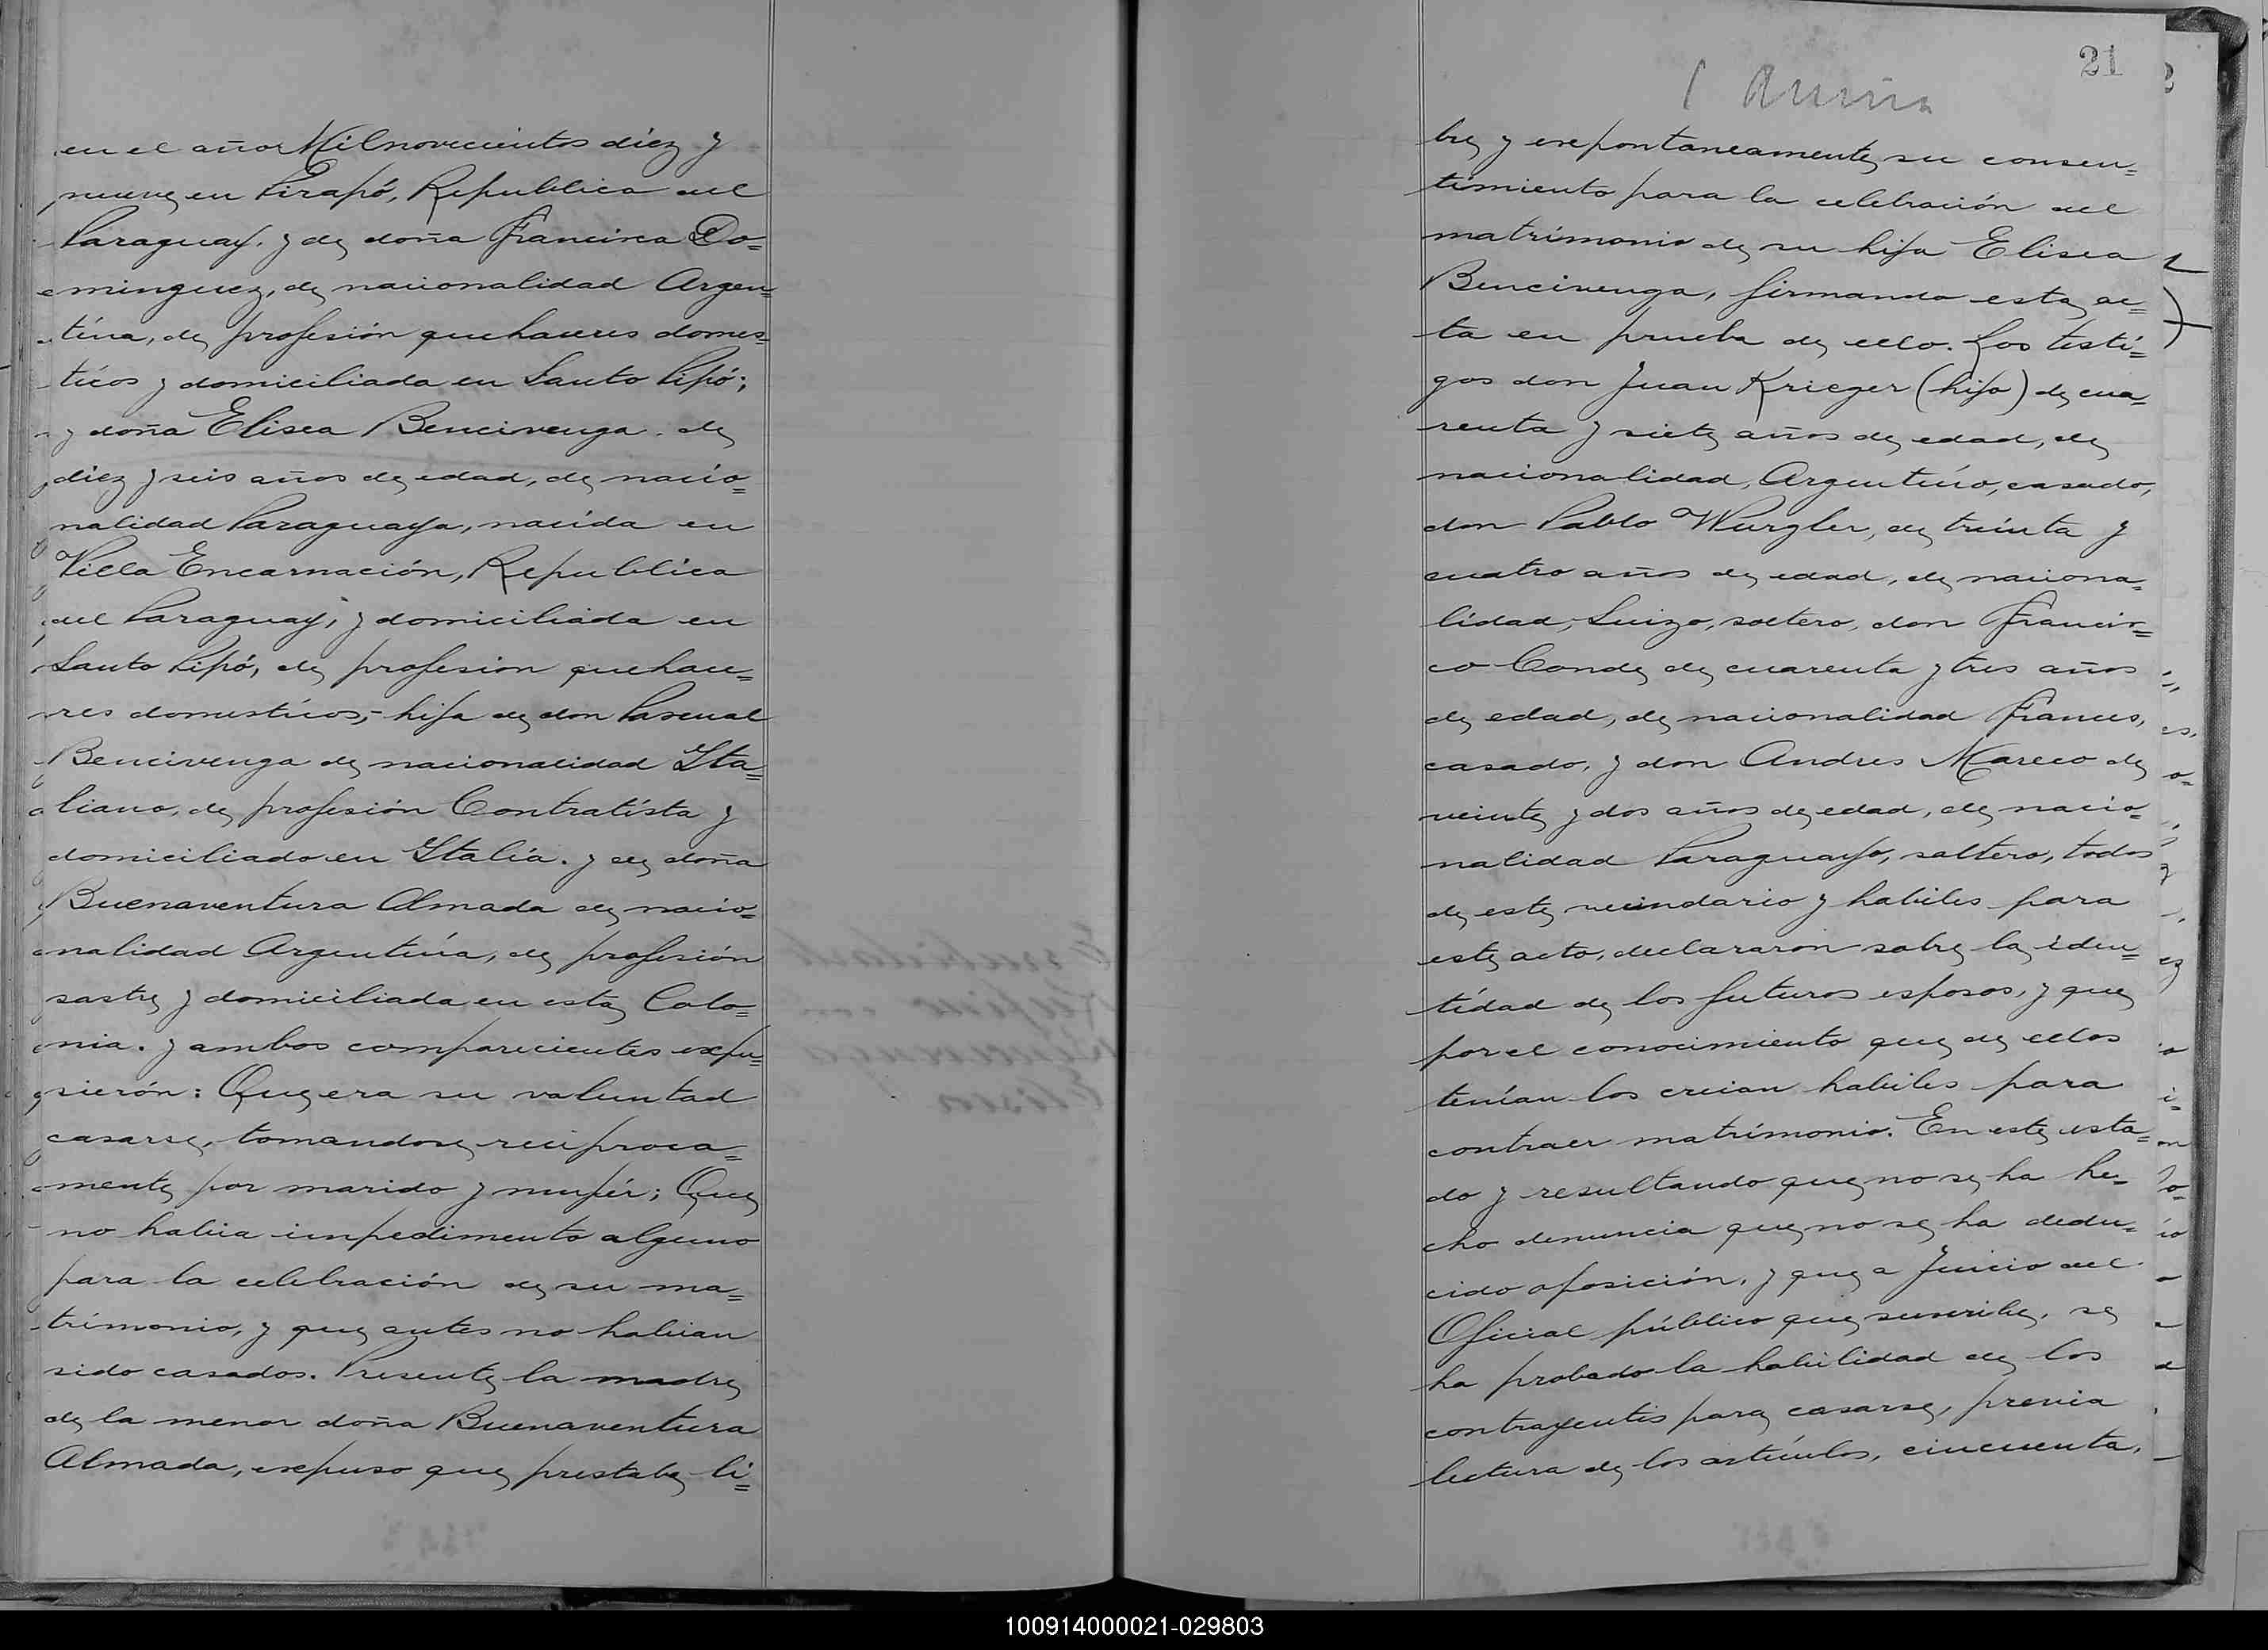 en el año Mil novecientos diez y
nueve, en Pirapó, Republica del
Paraguay. y de doña Francisca Do=
minguez, de nacionalidad Argen=
tína, de profesión quehaceres domes=
tícos y domiciliada en Santo Pipó;
y doña Elisea Bencivenga. de
diéz y seis años de edad, de nacio=
nalidad Paraguaya, nacída en
Villa Encarnación, Republíca
del Paraguay, y domiciliada en
Santo Pipó, de profesion quehace=
res domestícos,- hija de don Pascual
Bencivenga de nacionalidad Ita=
liano, de profesión Contratísta y
domiciliado en Italía. y de doña
Buenaventura Almada de nacio=
nalidad Argentína, de profesión
sastre y domiciliada en esta Colo=
nia. y ambos comparecientes expu=
sierón: Que era su voluntad
casarse, tomandose recíproca=
mente por marido y mujér; Que
no había impedimento alguno
para la celebración de su ma=
trímonio, y que antes no habian
sido casados. Presente la madre
de la menor doña Buenaventura
Almada, expuso que prestaba li=
21
bre y expontaneamente su consen=
timiento para la celebración del
matrímonio de su hija Elisea
Bencivenga, firmando esta ac=
ta en prueba de ello. Los testí=
gos don Juan Krieger (hijo) de cua=
renta y siete años de edad, de
nacionalidad, Argentíno, casado,
don Pablo Wurgler, de treinta y
cuatro años de edad, de naciona=
lidad, Suizo, soltero, don Francis=
co Conde de cuarenta y tres años
de edad, de nacionalidad Frances,
casado, y don Andres Mareco de
veinte y dos años de edad, de nacio=
nalidad Paraguayo, soltero, todos
de este vecindario y habiles para
este acto, declararon sobre la iden=
tídad de los futuros esposos, y que
por el conocimiento que de ellos
tenían los creian habiles para
contraer matrímonio. En este esta=
do y resultando que no se ha he=
cho denuncia que no se ha dedu=
cido oposición, y que a Juicio del
Oficial público que suscribe, se
ha probado la habilidad de los
contrayentes para casarse, previa
lectura de los artículos, cincuenta,
100914000021-029803